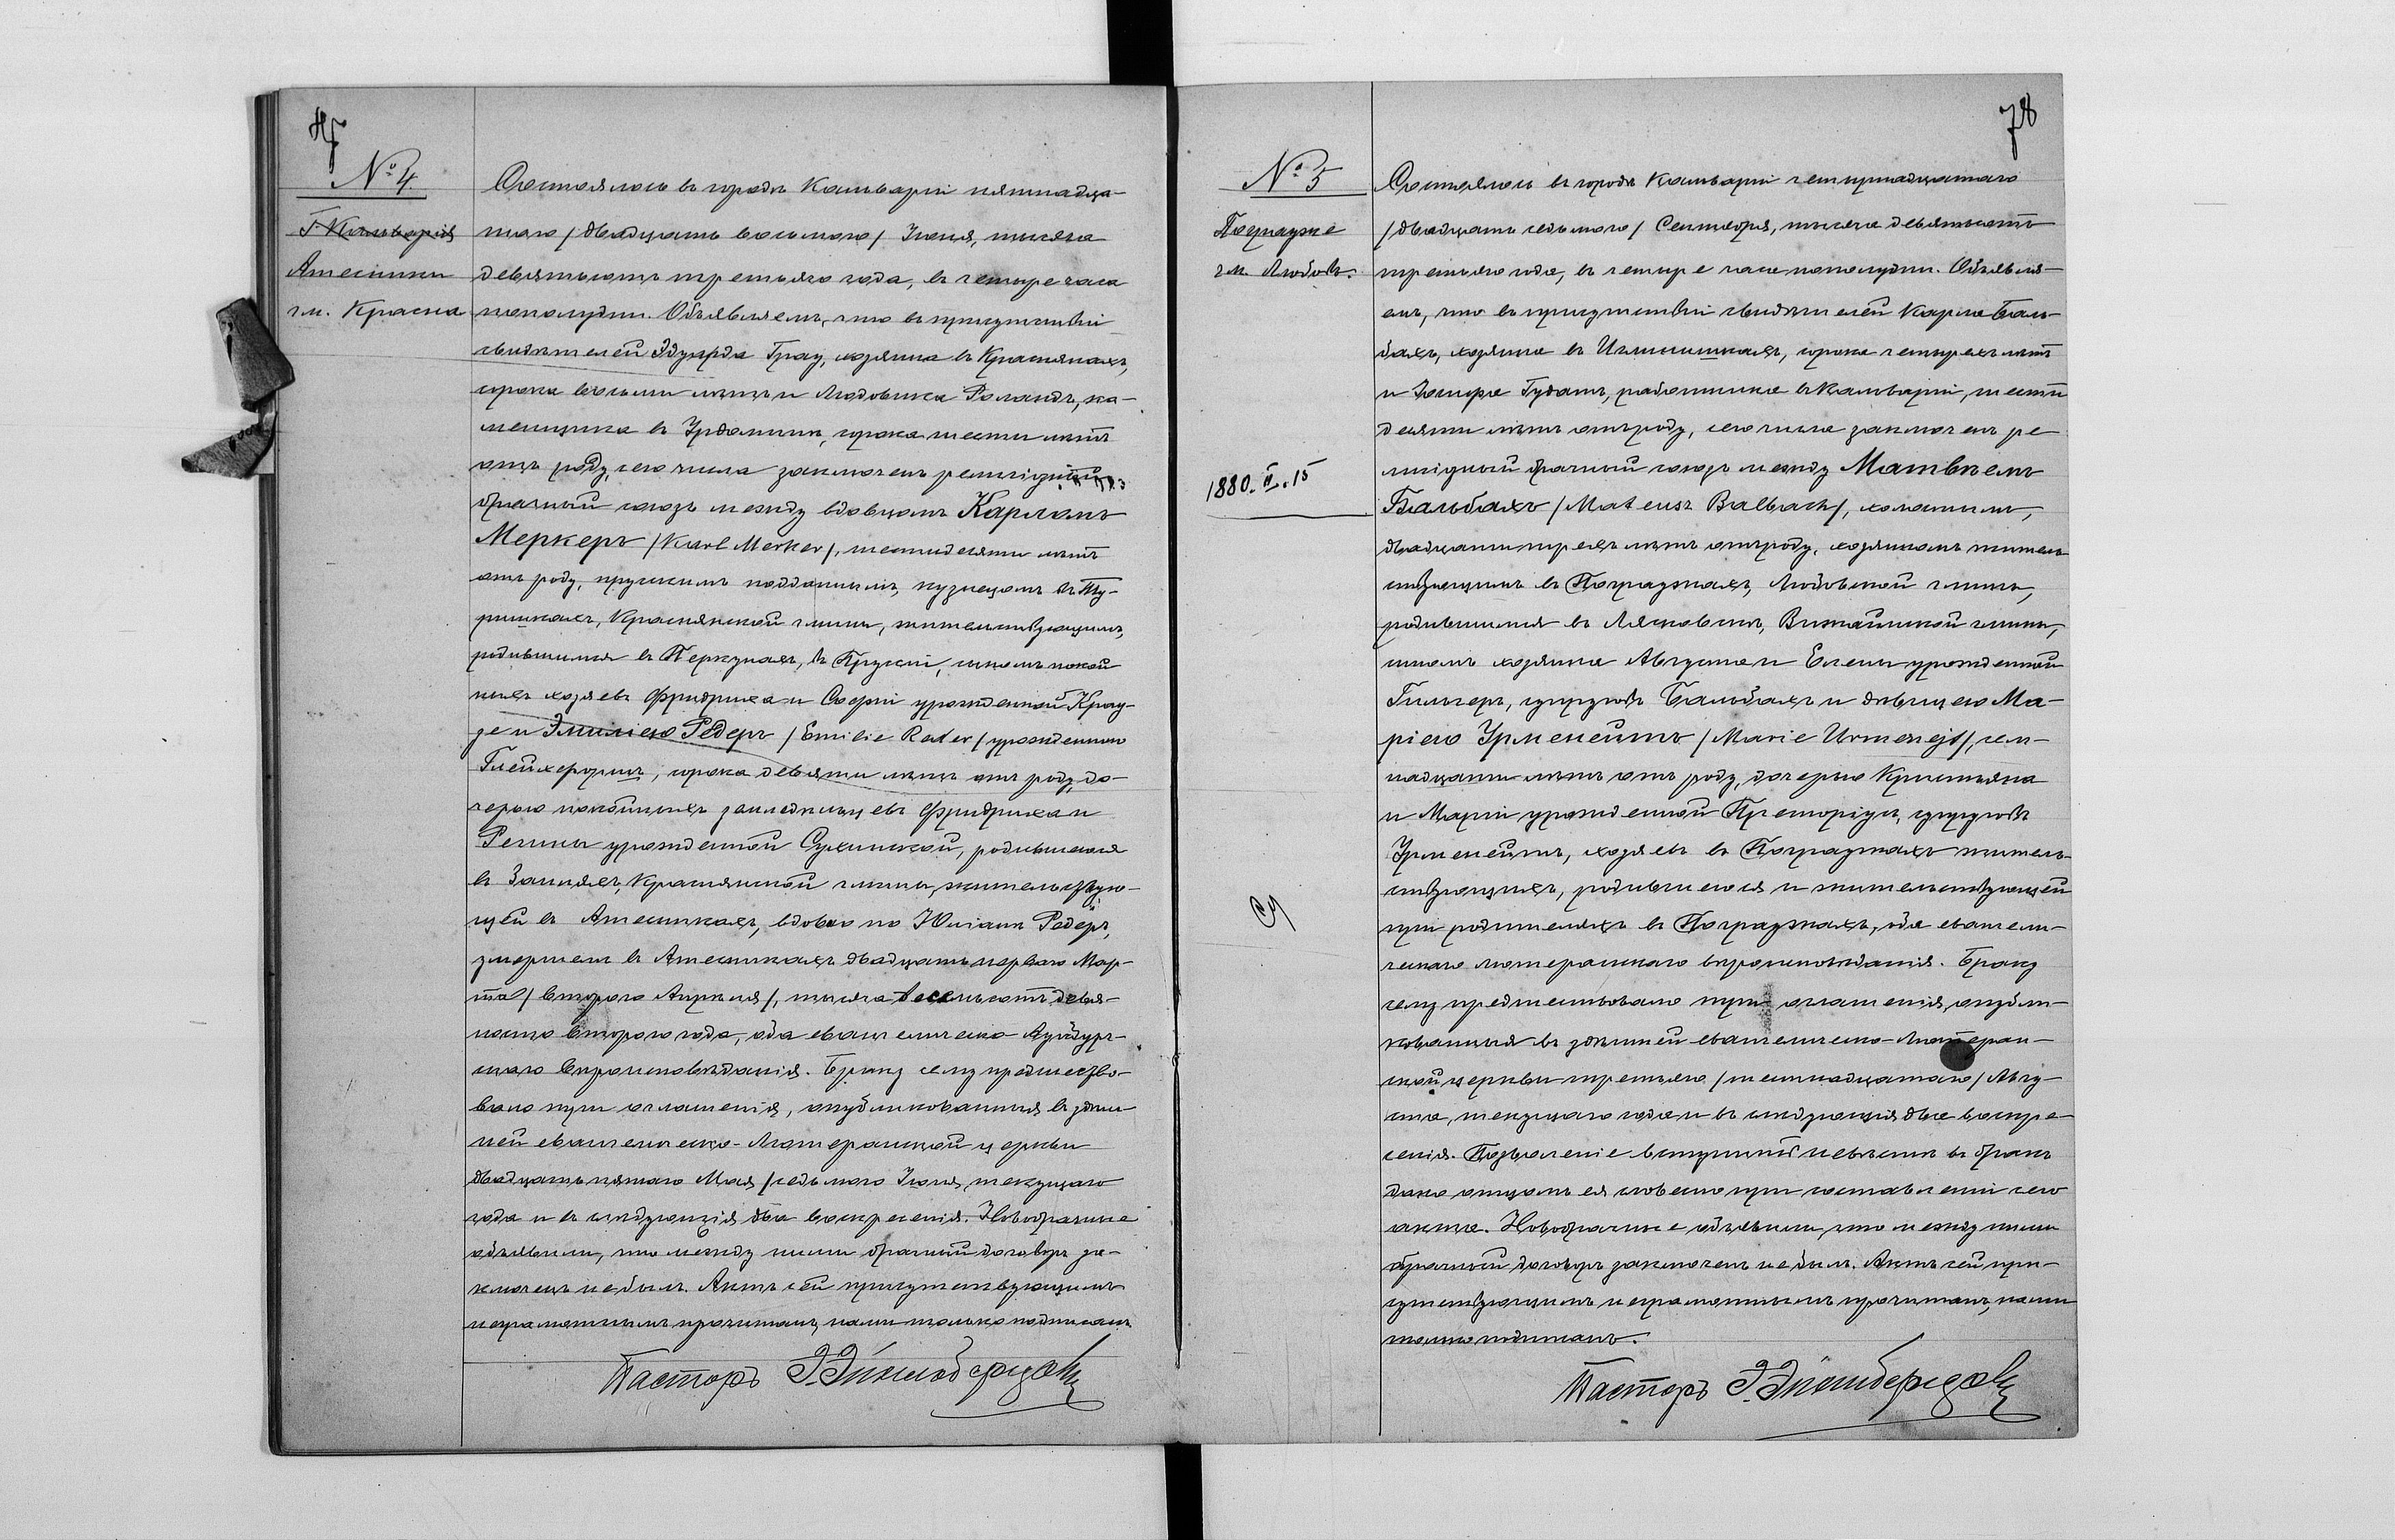 № 4.
Г. Кальварія
Атесники
гм. Красна
Состоялось въ городѣ Кальваріи пятнадца-
таго /двадцать восьмого/ Іюня, тысяча
девятьсотъ третьяго года, въ четыре часа
пополудни. Объявляемъ, что въ присутствіи
свидѣтелей Эдуарда Грау, хозяина въ Краснянахъ,
сорока восьми лѣтъ и Людовика Роландъ, ка-
менщика въ Урдоминѣ, сорока шести лѣтъ
отъ роду, сего числа заключенъ религіозный
брачный союзъ между вдовцомъ Карломъ
Меркеръ /Karl Merker/, шестидесяти лѣтъ
отъ роду, прусскимъ подданнымъ, кузнецомъ въ
Краснянской гмины, жительствующимъ,
родившимся въ Перкунахъ, въ Пруссіи, сыномъ покой
ныхъ хозяевъ Фридриха и Софіи урожденной Крау-
зе и Эмиліею Редеръ /Emilie Rader/ урожденною
сорока девяти лѣтъ отъ роду, до-
черью покойныхъ землевладѣльцевъ Фридриха и
Регины урожденной родившеюся
въ Краснянской гмины, жительствую-
щей въ Атесникахъ, вдовою по Юліанѣ Редеръ,
умершемъ въ Атесникахъ двадцать перваго Мар-
та /второго Апрѣля/, тысяча восемьсотъ девя-
носто второго года, оба евангелическо-Аугсбург-
скаго вѣроисповѣданія. Браку сему предшество-
вало три оглашенія, опубликованныя въ здѣш-
ней евангелическо-Лютеранской церкви
двадцать пятаго Мая /седьмого Іюня, текущаго
года и въ слѣдующія два воскресенія. Новобрачные
объявили, что между ними брачный договоръ за-
ключенъ не былъ. Актъ сей присутствующимъ
неграмотнымъ прочитанъ, нами только подписанъ.
Пасторъ
78
№ 5
Пограуже
гм. Любовъ.
1880. II. 15
Состоялось въ городѣ Кальваріи четырнадцатаго
/двадцать седьмого/ Сентября, тысяча девятьсотъ
третьяго года, въ четыре часа пополудни. Объявля-
емъ, что въ присутствіи свидѣтелей Карла Баль-
бахъ, хозяина въ сорока четырехъ лѣтъ
и Іосифа Гудатъ, работника въ Кальваріи, шести
десяти лѣтъ отъ роду, сего числа заключенъ ре
лигіозный брачный союзъ между Матвѣемъ
Бальбахъ /Mateusz Balbach/, холостымъ,
двадцати трехъ лѣтъ отъ роду, хозяиномъ житель
ствующимъ въ Пограужахъ, Любовской гмины,
родившимся въ Лясковскѣ, гмины,
сыномъ хозяина Августа и Елены урожденной
Гильгеръ, супруговъ Бальбахъ и дѣвицею Ма-
ріею Урменейтъ /Marie Urmenejt/, сем-
надцати лѣтъ отъ роду, дочерью Кристьяна
и Маріи урожденной Преторіусъ, супруговъ
Урменейтъ, хозяевъ въ Пограужахъ житель-
ствующихъ, родившеюся и жительствующей
при родителяхъ въ Пограужахъ, оба евангели-
ческаго лютеранскаго вѣроисповѣданія. Браку
сему предшествовало три оглашенія, опубли-
кованныя въ здѣшней евангелическо-Лютеран-
ской церкви третьяго /шестнадцатаго/ Авгу-
ста, текущаго года и въ слѣдующія два воскре-
сенія. Позволеніе вступающей невѣстѣ въ бракъ
дано отцомъ ея словесно при составленіи сего
акта. Новобрачные объявили, что между ними
брачный договоръ заключенъ не былъ. Актъ сей при-
сутствующимъ неграмотнымъ прочитанъ, нами
только подписанъ.
Пасторъ